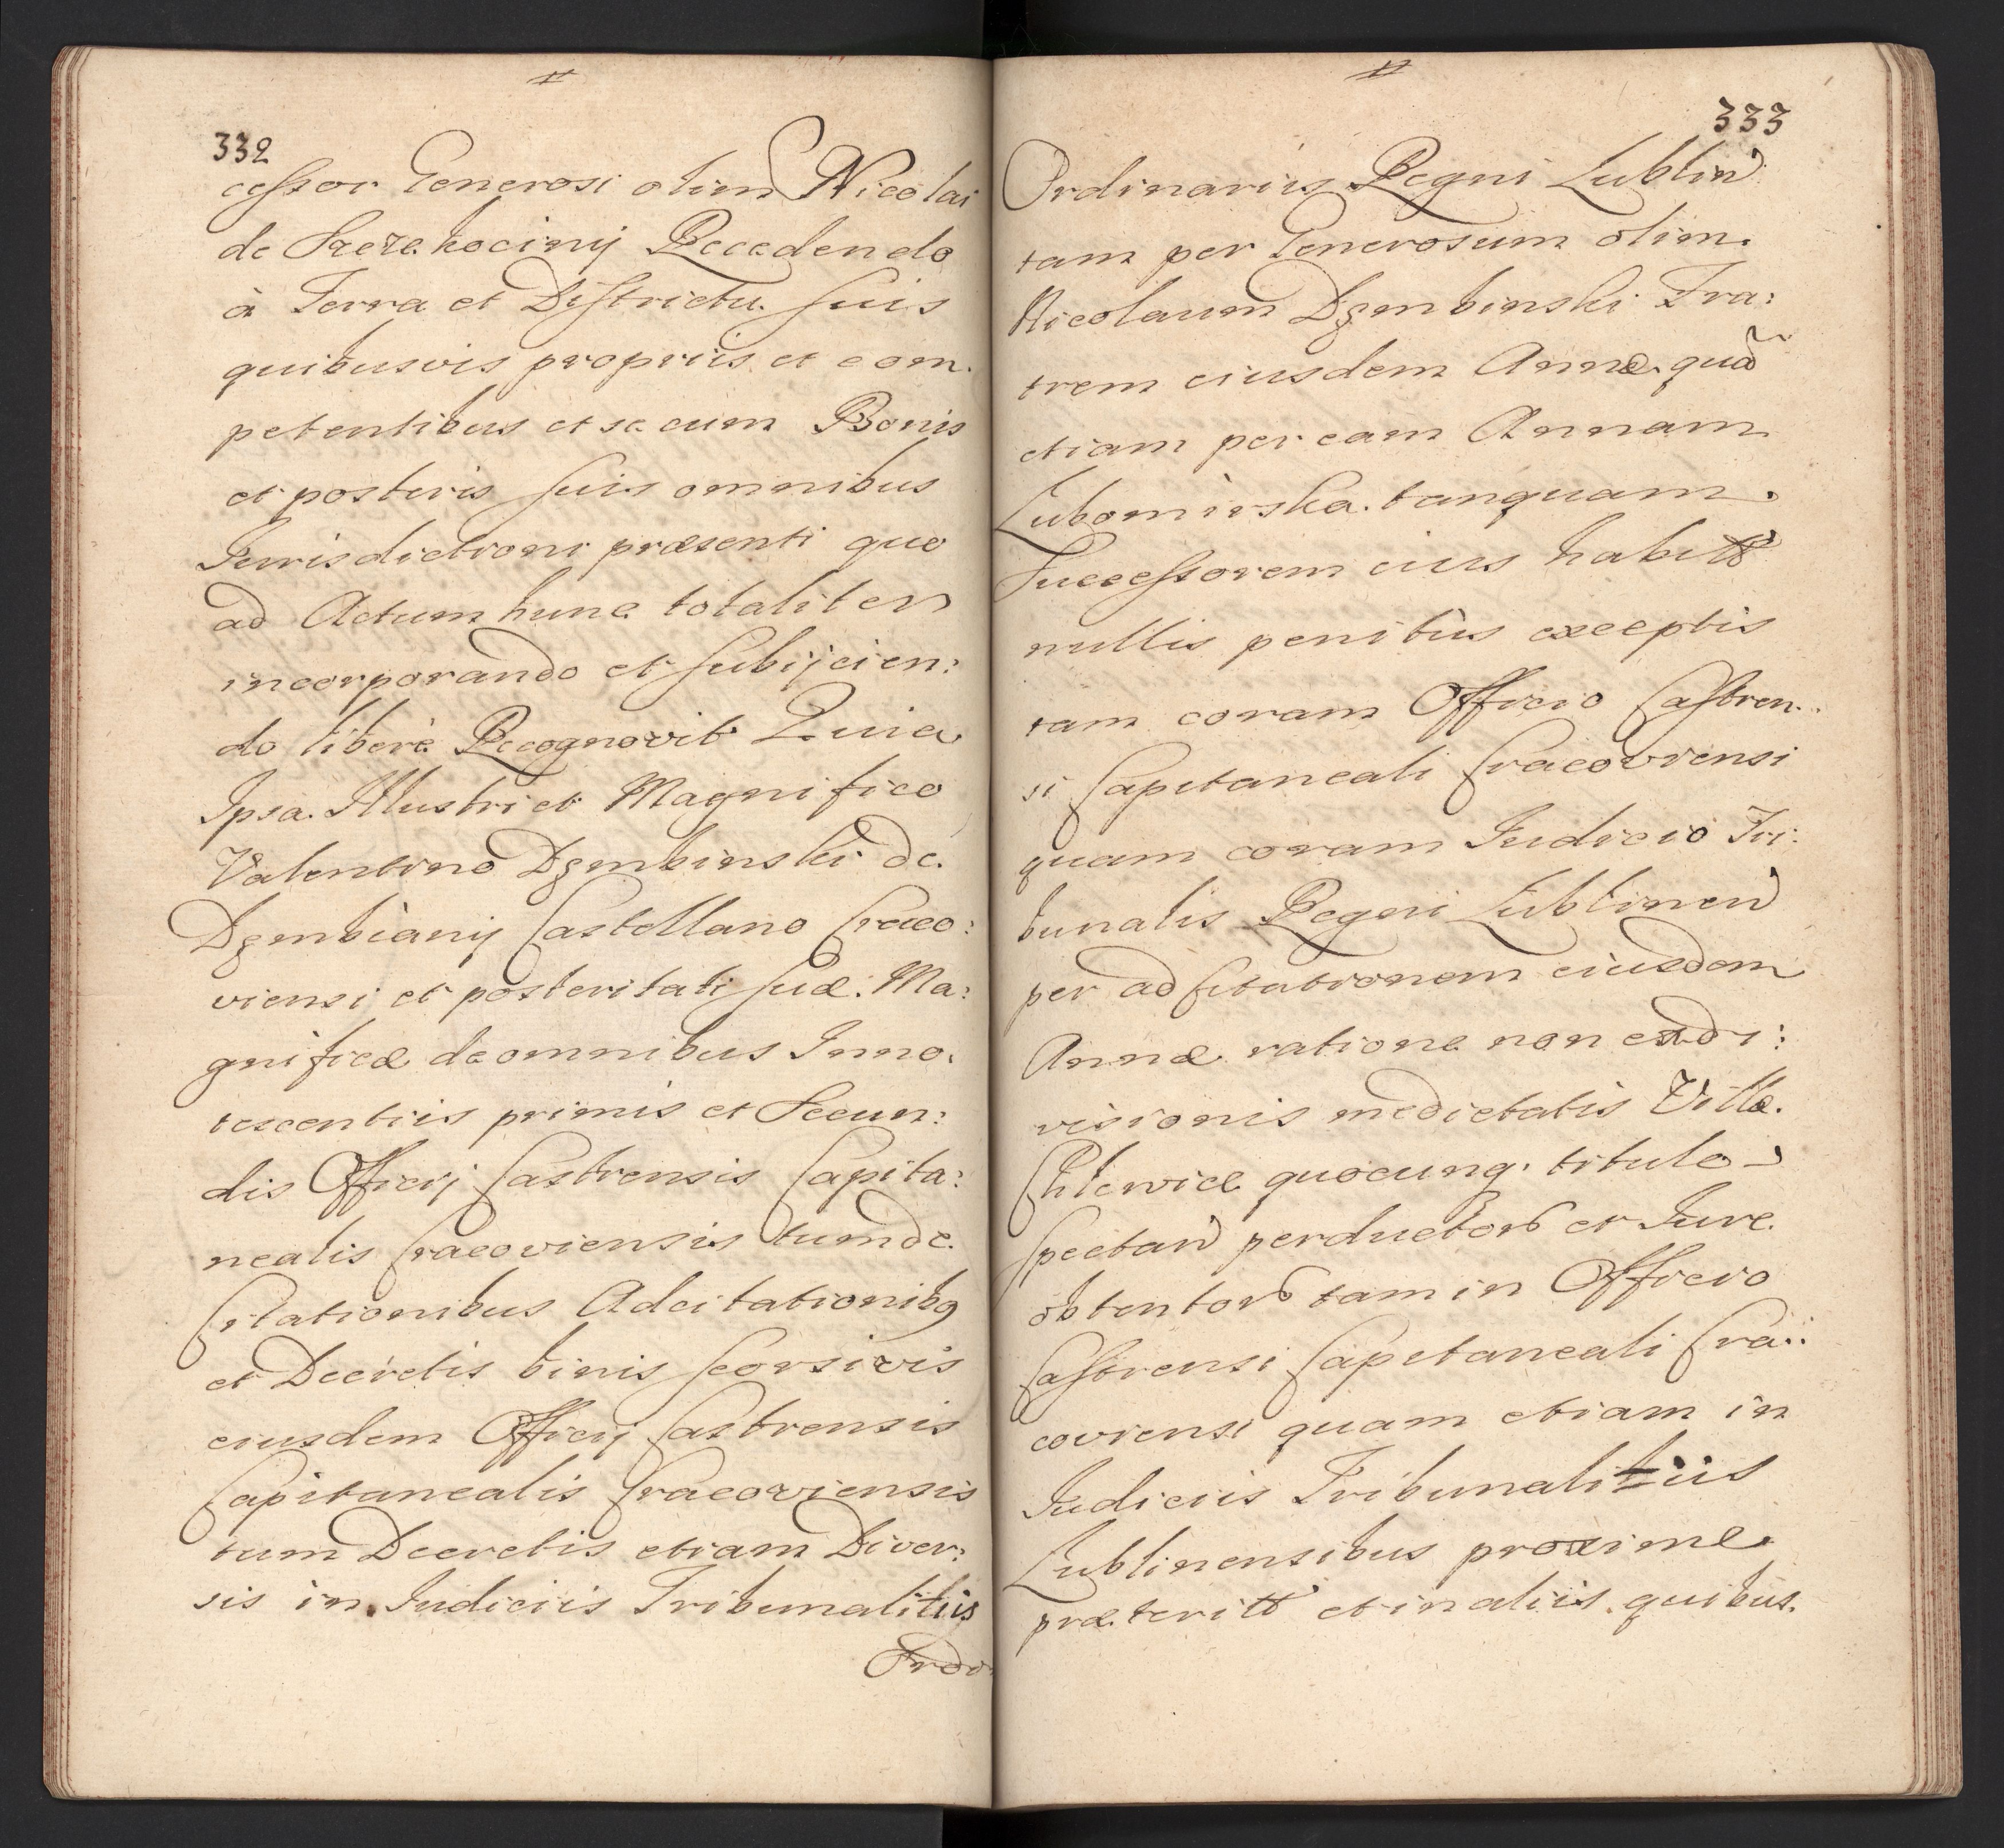 332
cessor Generosi olim Nicolai
de Szczekocinij Recedendo
à Terra et Districtu suis
quibusvis propriis et com.
petentibus et se cum Bonis
et posteris suis omnibus
Jurisdictioni præsenti quo
ad Actum hunc totaliter
incorporando et subijcien:
do liberè Recognovit Quia
Ipsa Illustri et Magnifico
Valentino Dęmbinski de
Dęmbiany Castellano Craco:
viensi et posteritati suæ. Ma:
gnificæ de omnibus Inno.
tescentiis primis et Secun:
dis Officij Castrensis Capita:
nealis Cracoviensis tum de
Citationibus Adcitationibq
et Decretis binis seorsivis
eiusdem Officij Castrensis
Capitanealis Cracoviensis
tum Decretis etiam Diver:
sis in Judiciis Tribunalitiis
Ordi
333
Ordinariis Regni Lublin
tam per Generosum olim
Nicolaum Dęmbinski Fra:
trem eiusdem Annæ quã
etiam per eam Annam
Lubomirska tanquam
Successorem eius habitt
nullis penitùs exceptis
tam coram Officio Castren.
si Capitaneali Cracoviensi
quam coram Judicio Tri:
bunalis Regni Lublinen
per ad Citationem eiusdem
Annæ ratione non exdi:
visionis medietatis Villæ
Chlewice quocunq. titulo
spectan perductors et Jure
obtentors tam in Officio
Castrensi Capitaneali Cra:
coviensi quam etiam in
Judiciis Tribunalitiis
Lublinensibus proxime
præteritt et in aliis quibus.